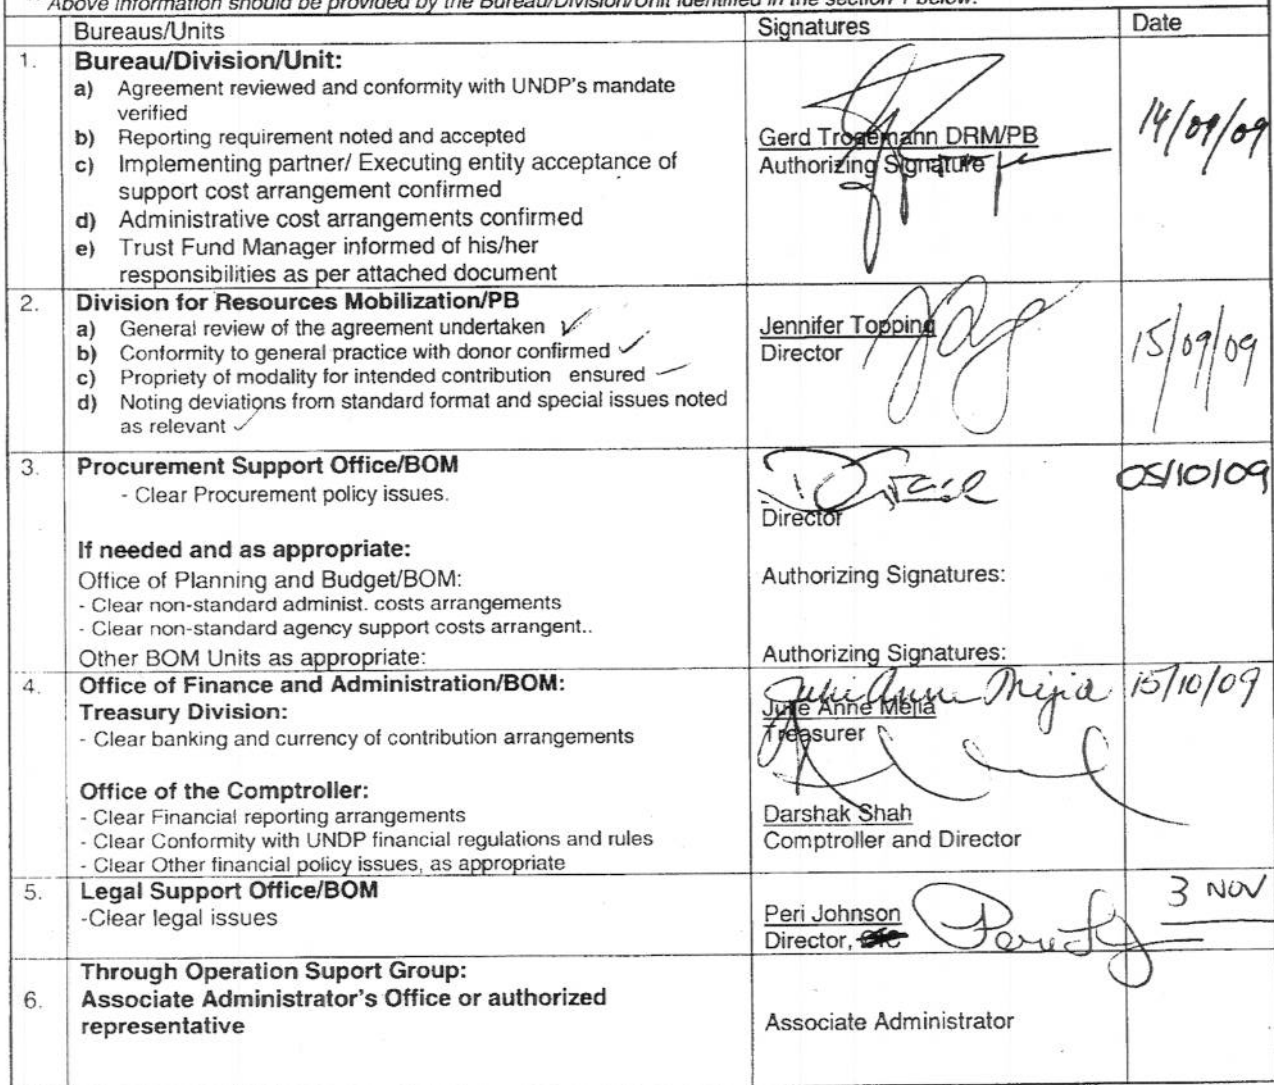 ** Above information should be provided by the Bureau/Division/Unit identified in the section 1 below.
Bureaus/Units Signatures Date
1. Bureau/Division/Unit:
a) Agreement reviewed and conformity with UNDP's mandate
verified
b) Reporting requirement noted and accepted
c) Implementing partner/ Executing entity acceptance of
support cost arrangement confirmed
d) Administrative cost arrangements confirmed
e) Trust Fund Manager informed of his/her
responsibilities as per attached document
Gerd Trogemann DRM/PB
Authorizing Signature
14/09/09
2. Division for Resources Mobilization/PB
a) General review of the agreement undertaken ✓
b) Conformity to general practice with donor confirmed ✓
c) Propriety of modality for intended contribution ensured ✓
d) Noting deviations from standard format and special issues noted
as relevant ✓
Jennifer Topping
Director
15/09/09
3. Procurement Support Office/BOM
- Clear Procurement policy issues.
Director
05/10/09
If needed and as appropriate:
Office of Planning and Budget/BOM:
- Clear non-standard administ. costs arrangements
- Clear non-standard agency support costs arrangent..
Authorizing Signatures:
Other BOM Units as appropriate:
Authorizing Signatures:
4. Office of Finance and Administration/BOM:
Treasury Division:
- Clear banking and currency of contribution arrangements
Julie Anne Mejia
Julie Anne Mejia
Treasurer
15/10/09
Office of the Comptroller:
- Clear Financial reporting arrangements
- Clear Conformity with UNDP financial regulations and rules
- Clear Other financial policy issues, as appropriate
Darshak Shah
Comptroller and Director
5. Legal Support Office/BOM
-Clear legal issues
Peri Johnson
Director,
3 NOV
6. Through Operation Suport Group:
Associate Administrator's Office or authorized
representative
Associate Administrator